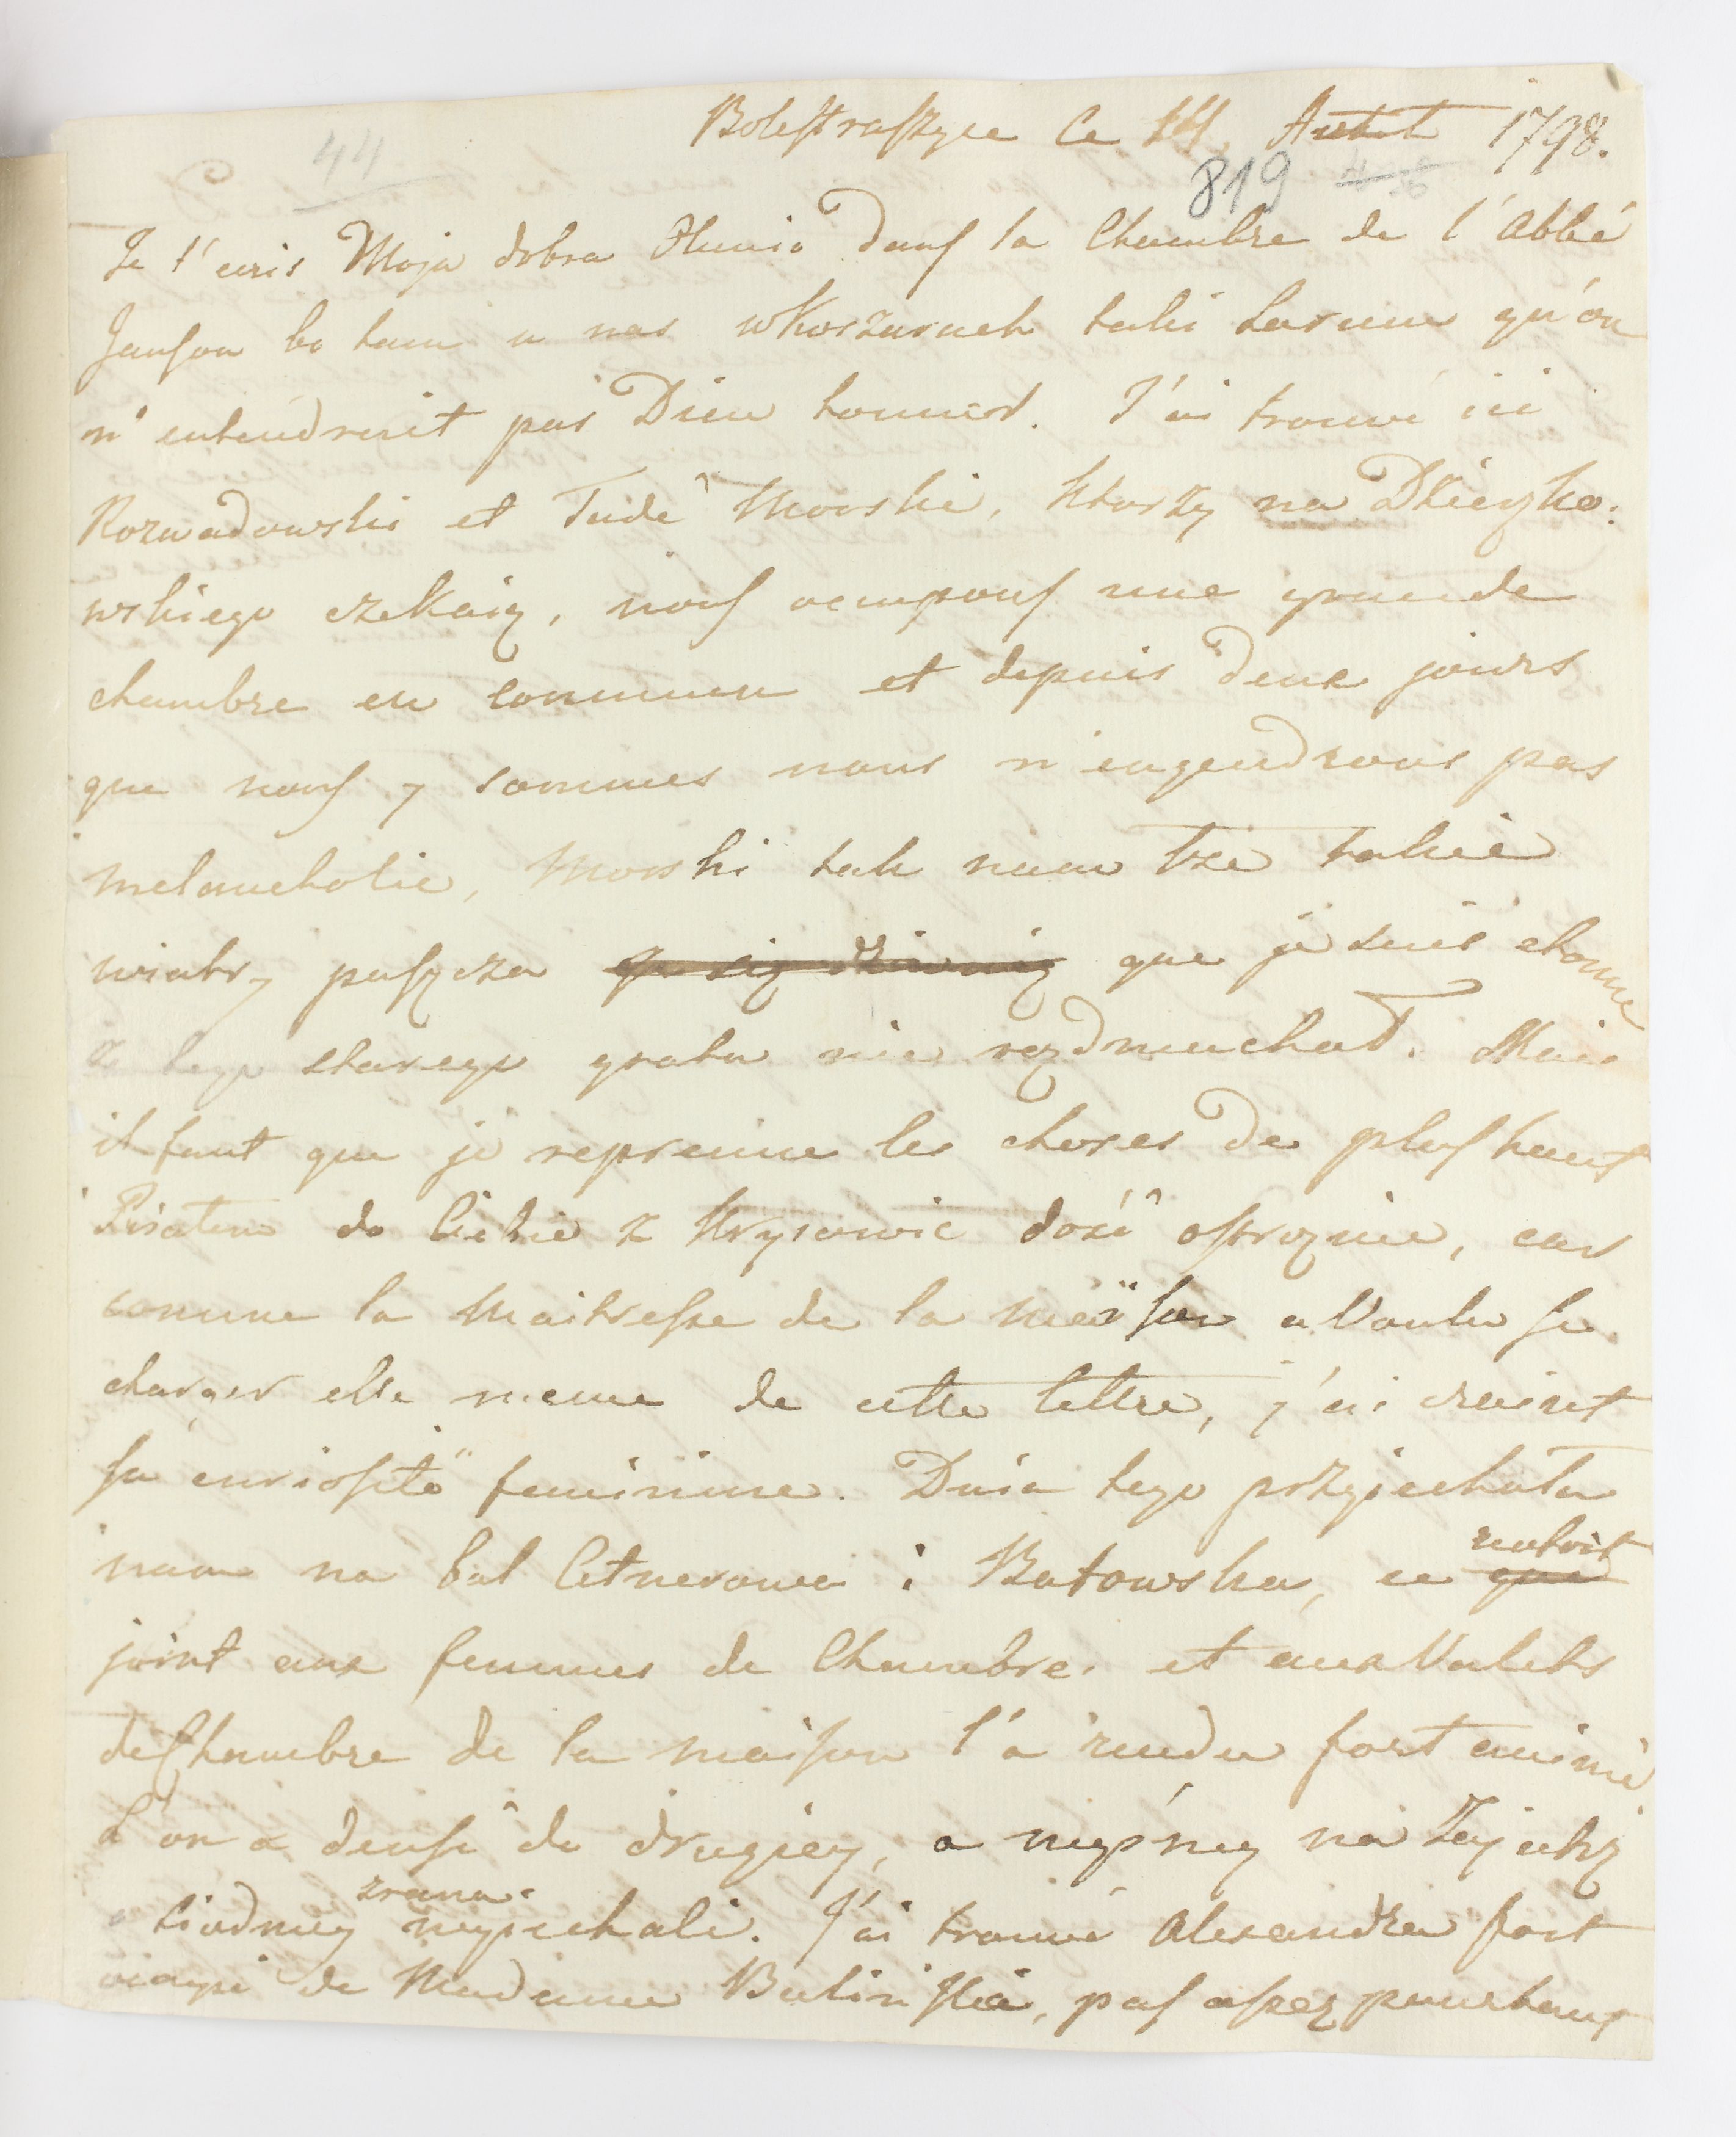 Bolestraszyce Ce 14 Aout 1798.
44
819
Je t'ecris Moja dobra Żuniu dans la Chambre de l'Abbé
Janson bo tam u nas w Koszarach taki Larum qu'on
n'entendroit pas Dieu tonner. J'ai trouvé ici
Rozwadowski et Tadé Morski, Ktorzy na Dzieyko:
wskiego czekaią, nous occupons une grande
chambre en commun et depuis deux jours
que nous y sommes nous n'engendrons pas
melancholie, Morski tak nam łże takie
wiatry puszcza że się dziwuię que je suis etonné
że tego starego grata nie rozdmuchał. Mais
il faut que je reprenne les choses de plus haut
Pisałem do Ciebie z Krysowic dość ostrożnie, car
comme la Maitresse de la maïson a Voulu se
charger elle meme de cette lettre, j'ai craint
sa curiosité feminine. Dnia tego przyjechała
nam na bal Cetnerowa i Batowska, ce
que
joint aux femmes de Chambre et aux Valets
de Chambre de la maison l'a rendu fort animé
L'on a densé do drugiey, a o
siodmey zrana wyjechali. J'ai trouvé Alexandre fort
occupé de Madame, pas assez pourtant